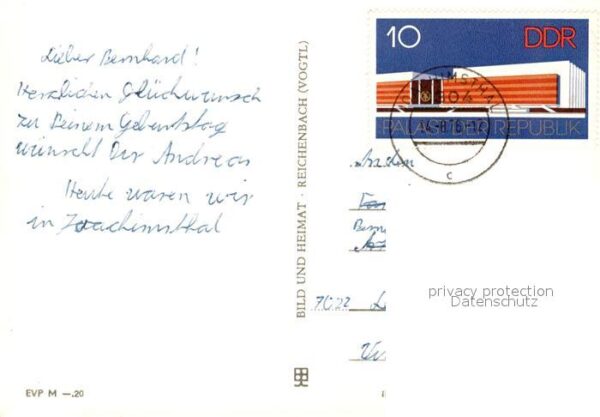 Lieber Bernhard!
Herzlichen Glückwunsch
zu Deinem Geburtstag
wünscht Dir Andreas
Heute waren wir
in Joachimsthal
EVP M —.20
BILD UND HEIMAT · REICHENBACH (VOGTL)
10 DDR
PALAST REPUBLIK
c
7022
privacy protection
Datenschutz